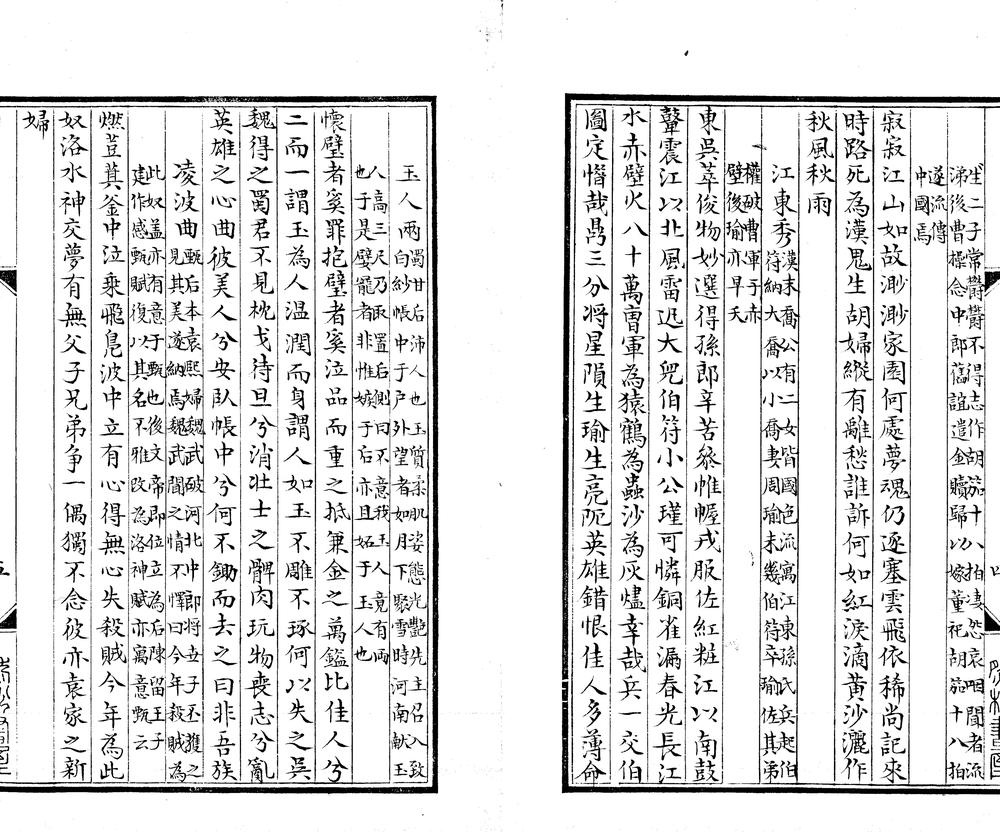 生二子常鬱鬱不得志作胡笳十八拍凄怨哀咽聞者流
涕後曹操念中郎舊誼遣金贖歸以嫁董祀胡笳十八拍
遂流傳
中國焉
寂寂江山如故渺渺家園何處夢魂仍逐塞雲飛依稀尚記來
時路死為漢鬼生胡婦縱有離愁誰訴何如紅淚滴黃沙灑作
秋風秋雨
江東秀漢末喬公有二女皆國色流寓江東孫氏兵起伯
符納大喬以小喬妻周瑜未幾伯符卒瑜佐其弟
權破曹軍于赤
壁後瑜亦早夭
東吳萃俊物妙選得孫郎辛苦叅帷幄戎服佐紅粧江以南鼓
鼙震江以北風雷迅大兒伯符小公瑾可憐銅雀漏春光長江
水赤壁火八十萬曹軍為猿鶴為蟲沙為灰燼幸哉兵一交伯
圖定憯哉鼎三分將星隕生瑜生亮阨英雄錯恨佳人多薄命
玉人兩蜀甘后沛人也玉質柔肌姿態光艷先主召入致
白紗帳中于戶外望者如月下聚雪時河南獻玉
人高三尺乃取置后側曰不意我玉人竟有兩
也于是嬖寵者非惟嫉于后亦且妬于玉人也
懷璧者奚罪抱璧者奚泣品而重之抵兼金之萬鎰比佳人兮
二而一謂玉為人溫潤而身謂人如玉不雕不琢何以失之吳
魏得之蜀君不見枕戈待旦兮消壯士之髀肉玩物喪志兮亂
英雄之心曲彼美人兮安臥帳中兮何不鋤而去之曰非吾族
凌波曲甄后本袁熙婦魏武破河北中郎將世子丕獲之
見其美遂納焉魏武聞之情不懌曰今年殺賊為
此奴蓋亦有意于甄也後文帝即位立為后陳留王子
建作感甄賦復以其名不雅改為洛神賦亦寓意甄云
燃荳萁釜中泣乘飛鳧波中立有心得無心失殺賊今年為此
奴洛水神交夢有無父子兄弟爭一偶獨不念彼亦袁家之新
婦